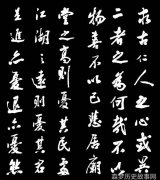 求古仁人之心或異
二者之為何哉不以
物喜不以己悲居廟
堂之高則憂其民處
江湖之遠則憂其君
是進亦憂退亦憂然
历史故事网